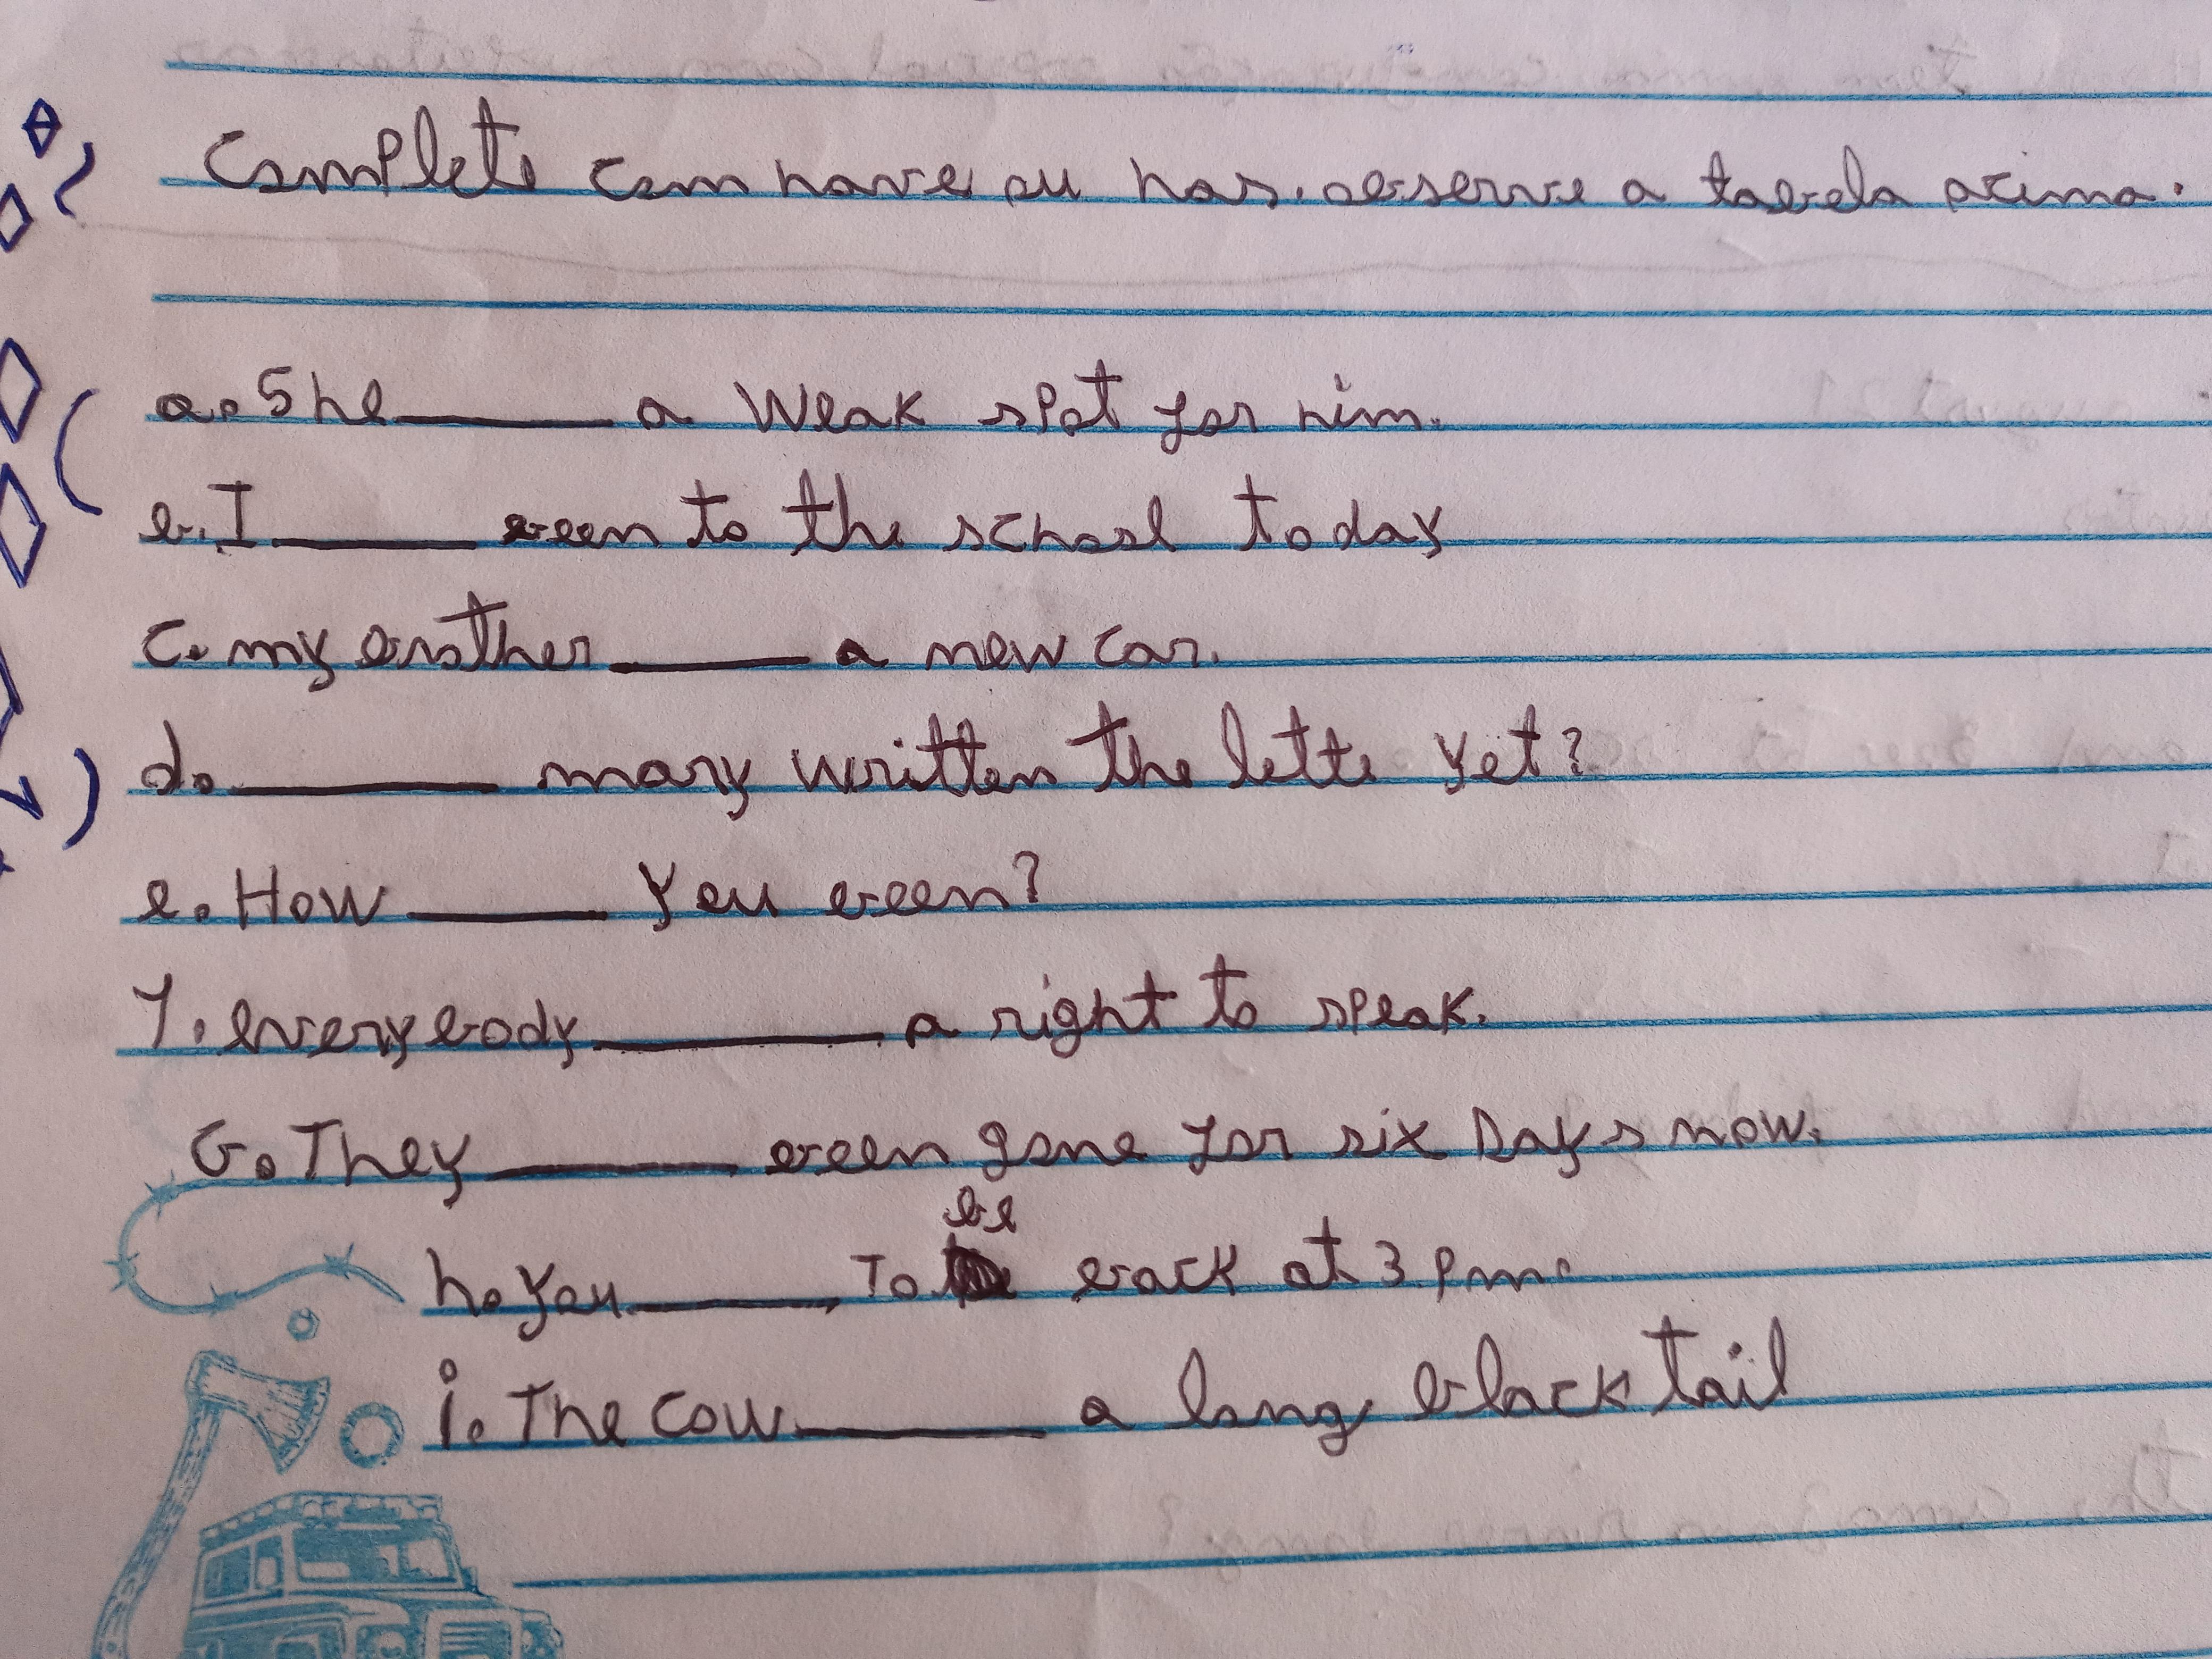 Complete com have ou has. observe a tabela acima.
a. She ______ a Weak spot for him.
b. I ______ been to the school today
c. my brother ______ a new car.
d. ______ mary written the lette yet?
e. How ______ you been?
f. everybody ______ a right to speak.
G. They ______ been gone for six Days now.
be
h. you ______ To back at 3 pm.
i. The cow ______ a long black tail